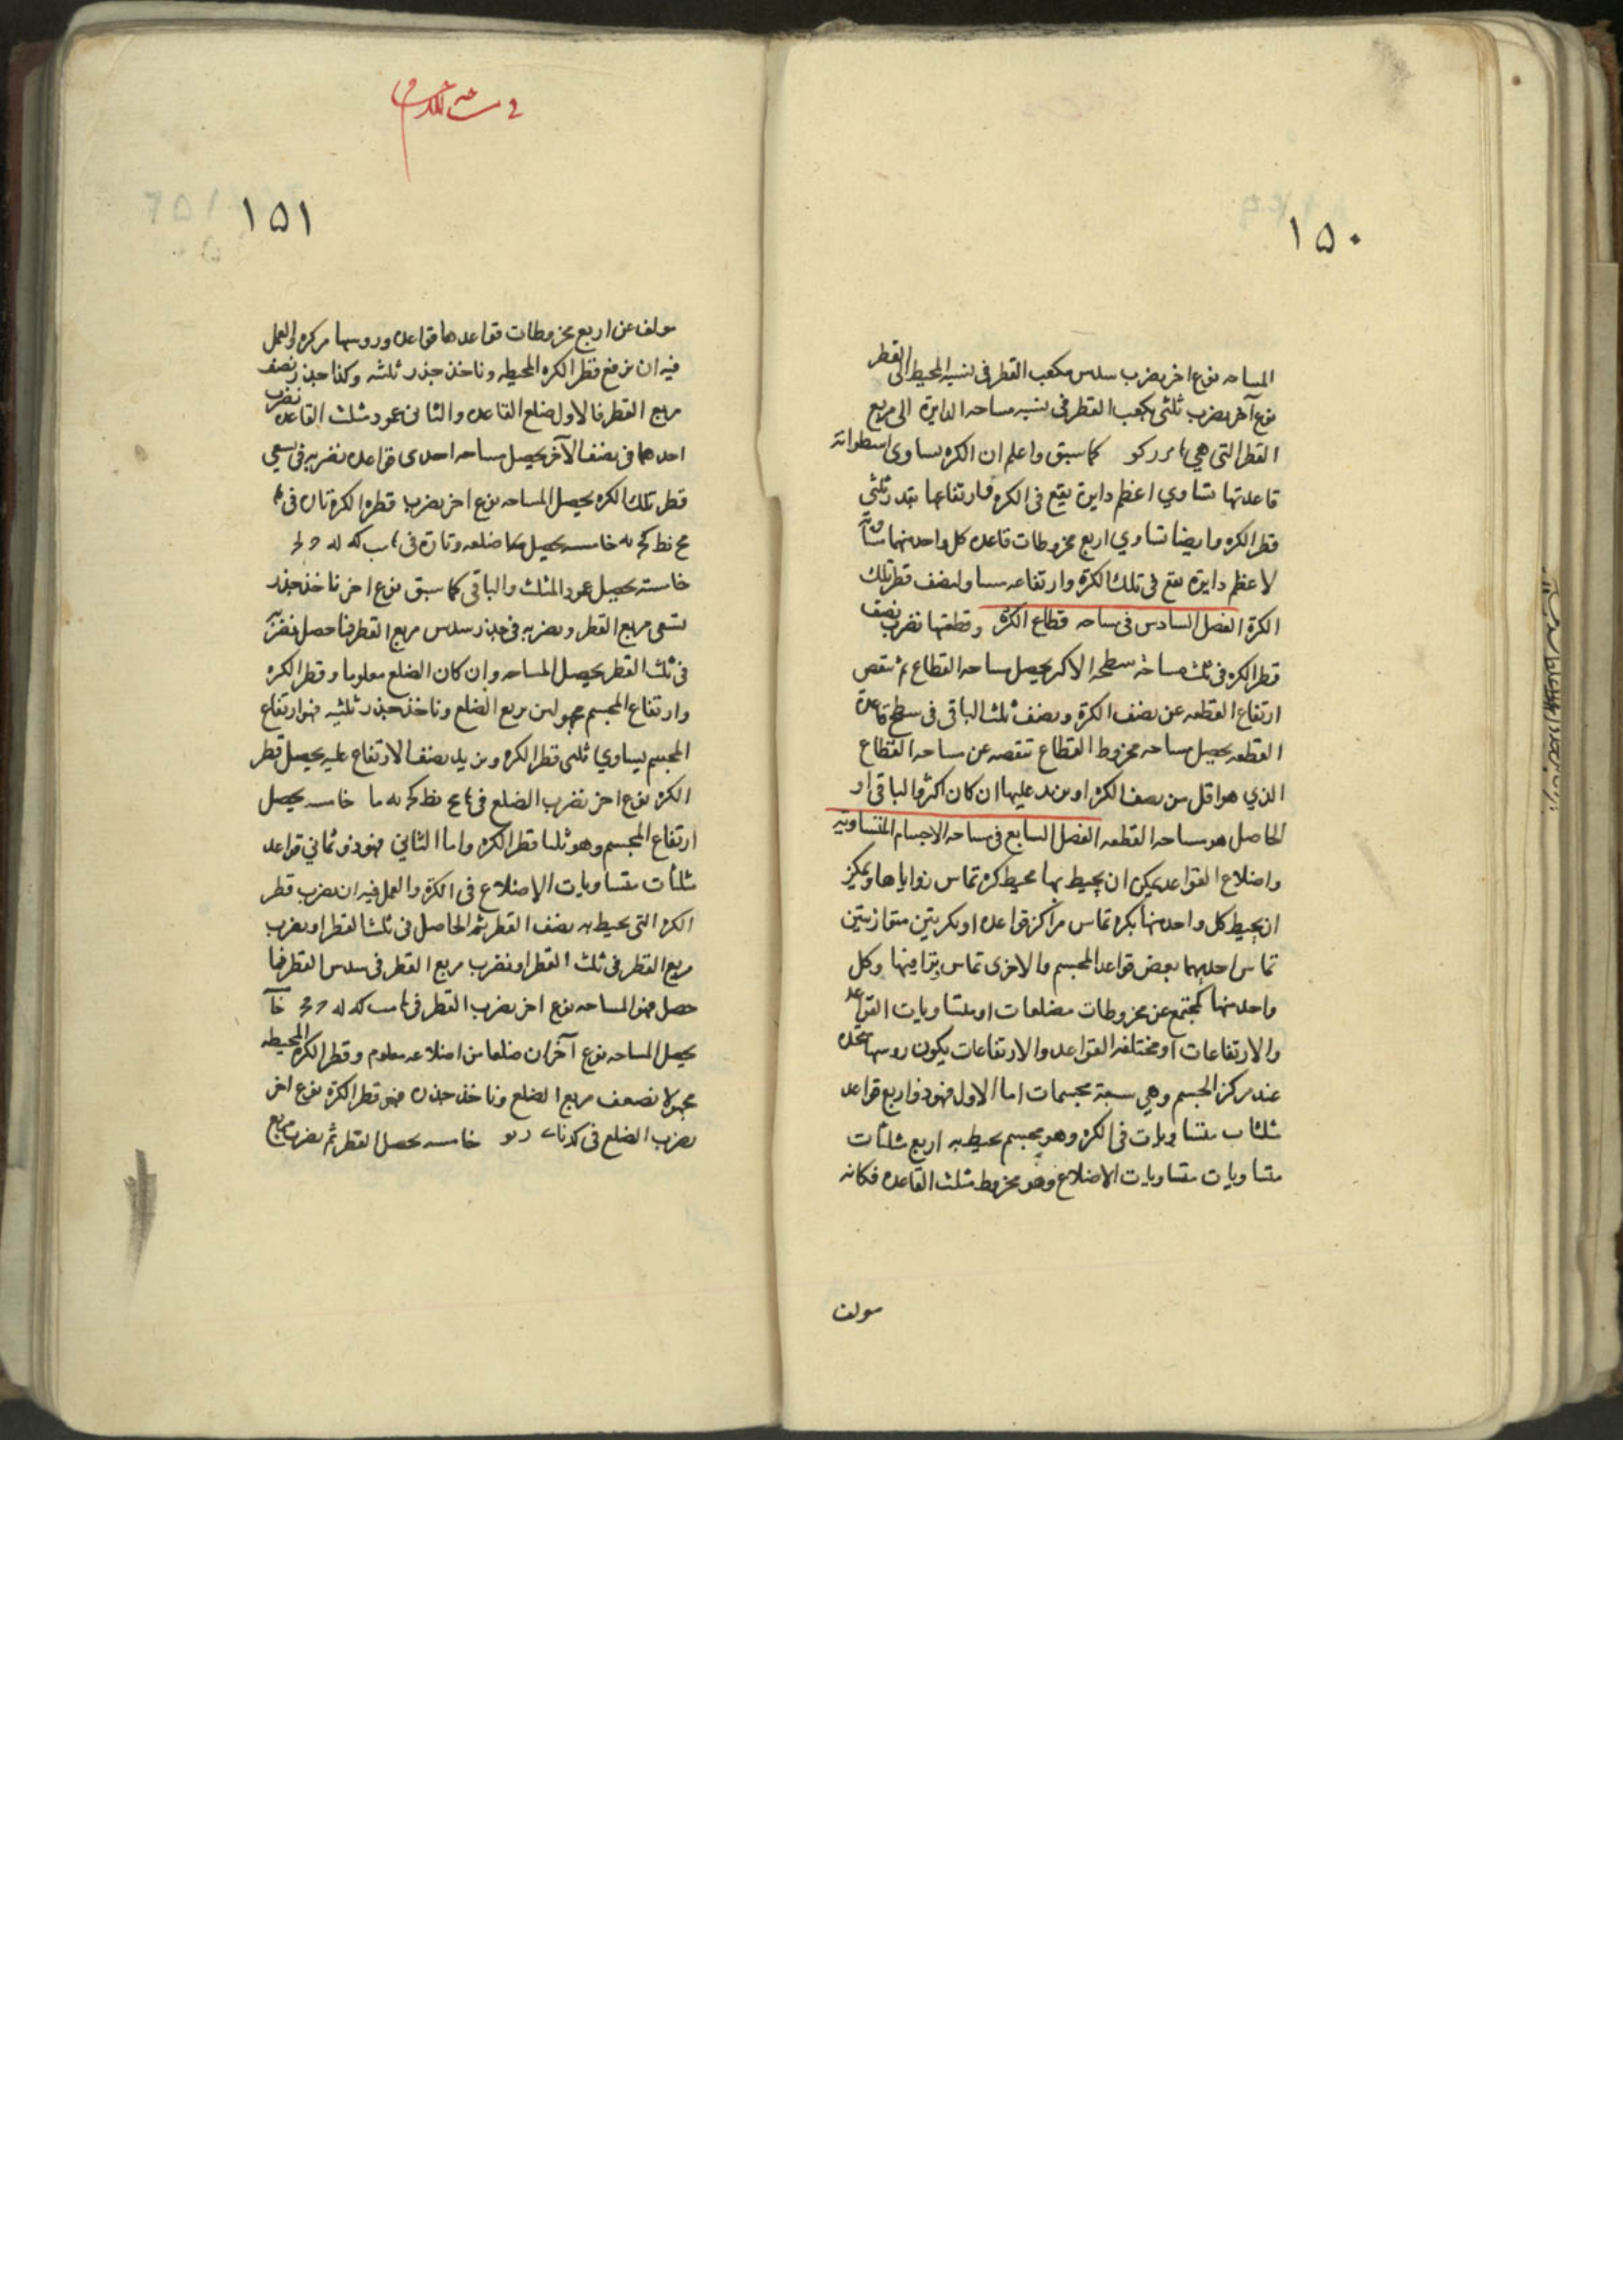 ١٥٠
المساحه نوع اخر نضرب سدس مكعب القطر فى نسبه المحيط الى القطر
نوع آخر نضرب ثلثى مكعب القطر فى نسبه مساحه الدايرة الى مربع
القطر التى هي كما سبق واعلم ان الكره تساوى اسطوانة
قاعدتها تساوي اعظم دايرة يقع فى الكره وارتفاعها بقدر ثلثي
قطر الكره وايضا تساوي اربع مخروطات قاعده كل واحد منها مساوية
لاعظم دايرة تقع فى تلك الكرة وارتفاعه مساو لنصف قطر تلك
الكرة الفصل السادس فى مساحه قطاع الكرة وقطعتها نضرب نصف
قطر الكره فى ثلث مساحة سطحه الاكر يحصل مساحه القطاع ثم ننقص
ارتفاع القطعه عن نصف الكرة ونضف ثلث الباقى فى سطح قاعدة
القطعه يحصل مساحه مخروط القطاع تنقصه عن مساحه القطاع
الذي هو اقل من نصف الكره او نزيد عليها ان كان اكثر فالباقى او
الحاصل هو مساحه القطعه الفصل السابع فى مساحه الاجسام المتساويه
واضلاع القواعد يمكن ان يحيط بها محيط كره تماس زواياها ويمكن
ان يحيط كل واحد منها بكره تماس مراكز قواعده او بكرتين متوازيتين
تماس احديهما بعض قواعد المجسم والاخرى تماس بواقيها وكل
واحد منها كمجتمع عن مخروطات مضلعات او متساويات القواعد
والارتفاعات او مختلفه القواعد والارتفاعات يكون روسها متحده
عند مركز الجسم وهي سبعة مجسمات اما الاول فهو ذو اربع قواعد
مثلثات متساويات فى الكره وهو مجسم يحيط به اربع مثلثات
متساويات متساويات الاضلاع وهو مخروط مثلث القاعده فكانه
مولف
١٥١
مولف عن اربع مخروطات قواعدها قواعده وروسها مركزه والعمل
فيه ان نربع قطر الكره المحيطه وناخذ جذر ثلثيه وكذا جذر نصف
مربع القطر فالاول ضلع القاعده والثانى عمود مثلث القاعده نضرب
احدهما فى نصف الآخر يحصل مساحه احدى قواعده نضربه فى تسعي
قطر تلك الكره يحصل المساحه نوع اخر نضرب قطره الكرة تارة فى
مح نط كح نه خامسه يحصل ضلعه وتارة فى
خامسته يحصل عمود المثلث والباقى كما سبق نوع اخر ناخذ جذر
تسعى مربع القطر ونضربه فى جذر سدس مربع القطر فما حصل نضربه
فى ثلث القطر يحصل المساحه وان كان الضلع معلوما وقطر الكره
وارتفاع المجسم مجهولين نربع الضلع وناخذ جذر ثلثيه فهو ارتفاع
المجسم يساوي ثلثى قطر الكره ونزيد نصف الارتفاع عليه يحصل قطر
الكره نوع اخر نضرب الضلع فى مح نط كح نه ما خامسه يحصل
ارتفاع المجسم وهو ثلثا قطر الكره واما الثاني فهو ذو ثماني قواعد
مثلثات متساويات الاضلاع فى الكرة والعمل فيه ان نضرب قطر
الكره التى يحيط به نصف القطر ثم الحاصل فى ثلث القطر او نضرب
مربع القطر فى ثلث القطر او نضرب مربع القطر فى سدس القطر فما
حصل فهو المساحه نوع اخر نضرب القطر فى
يحصل المساحه نوع آخر ان ضلعا من اضلاعه معلوم وقطر الكره المحيطه
مجهولا نضعف مربع الضلع وناخذ جذره فهو قطر الكرة نوع اخر
نضرب الضلع فى خامسه يحصل القطر ثم نضرب مربع